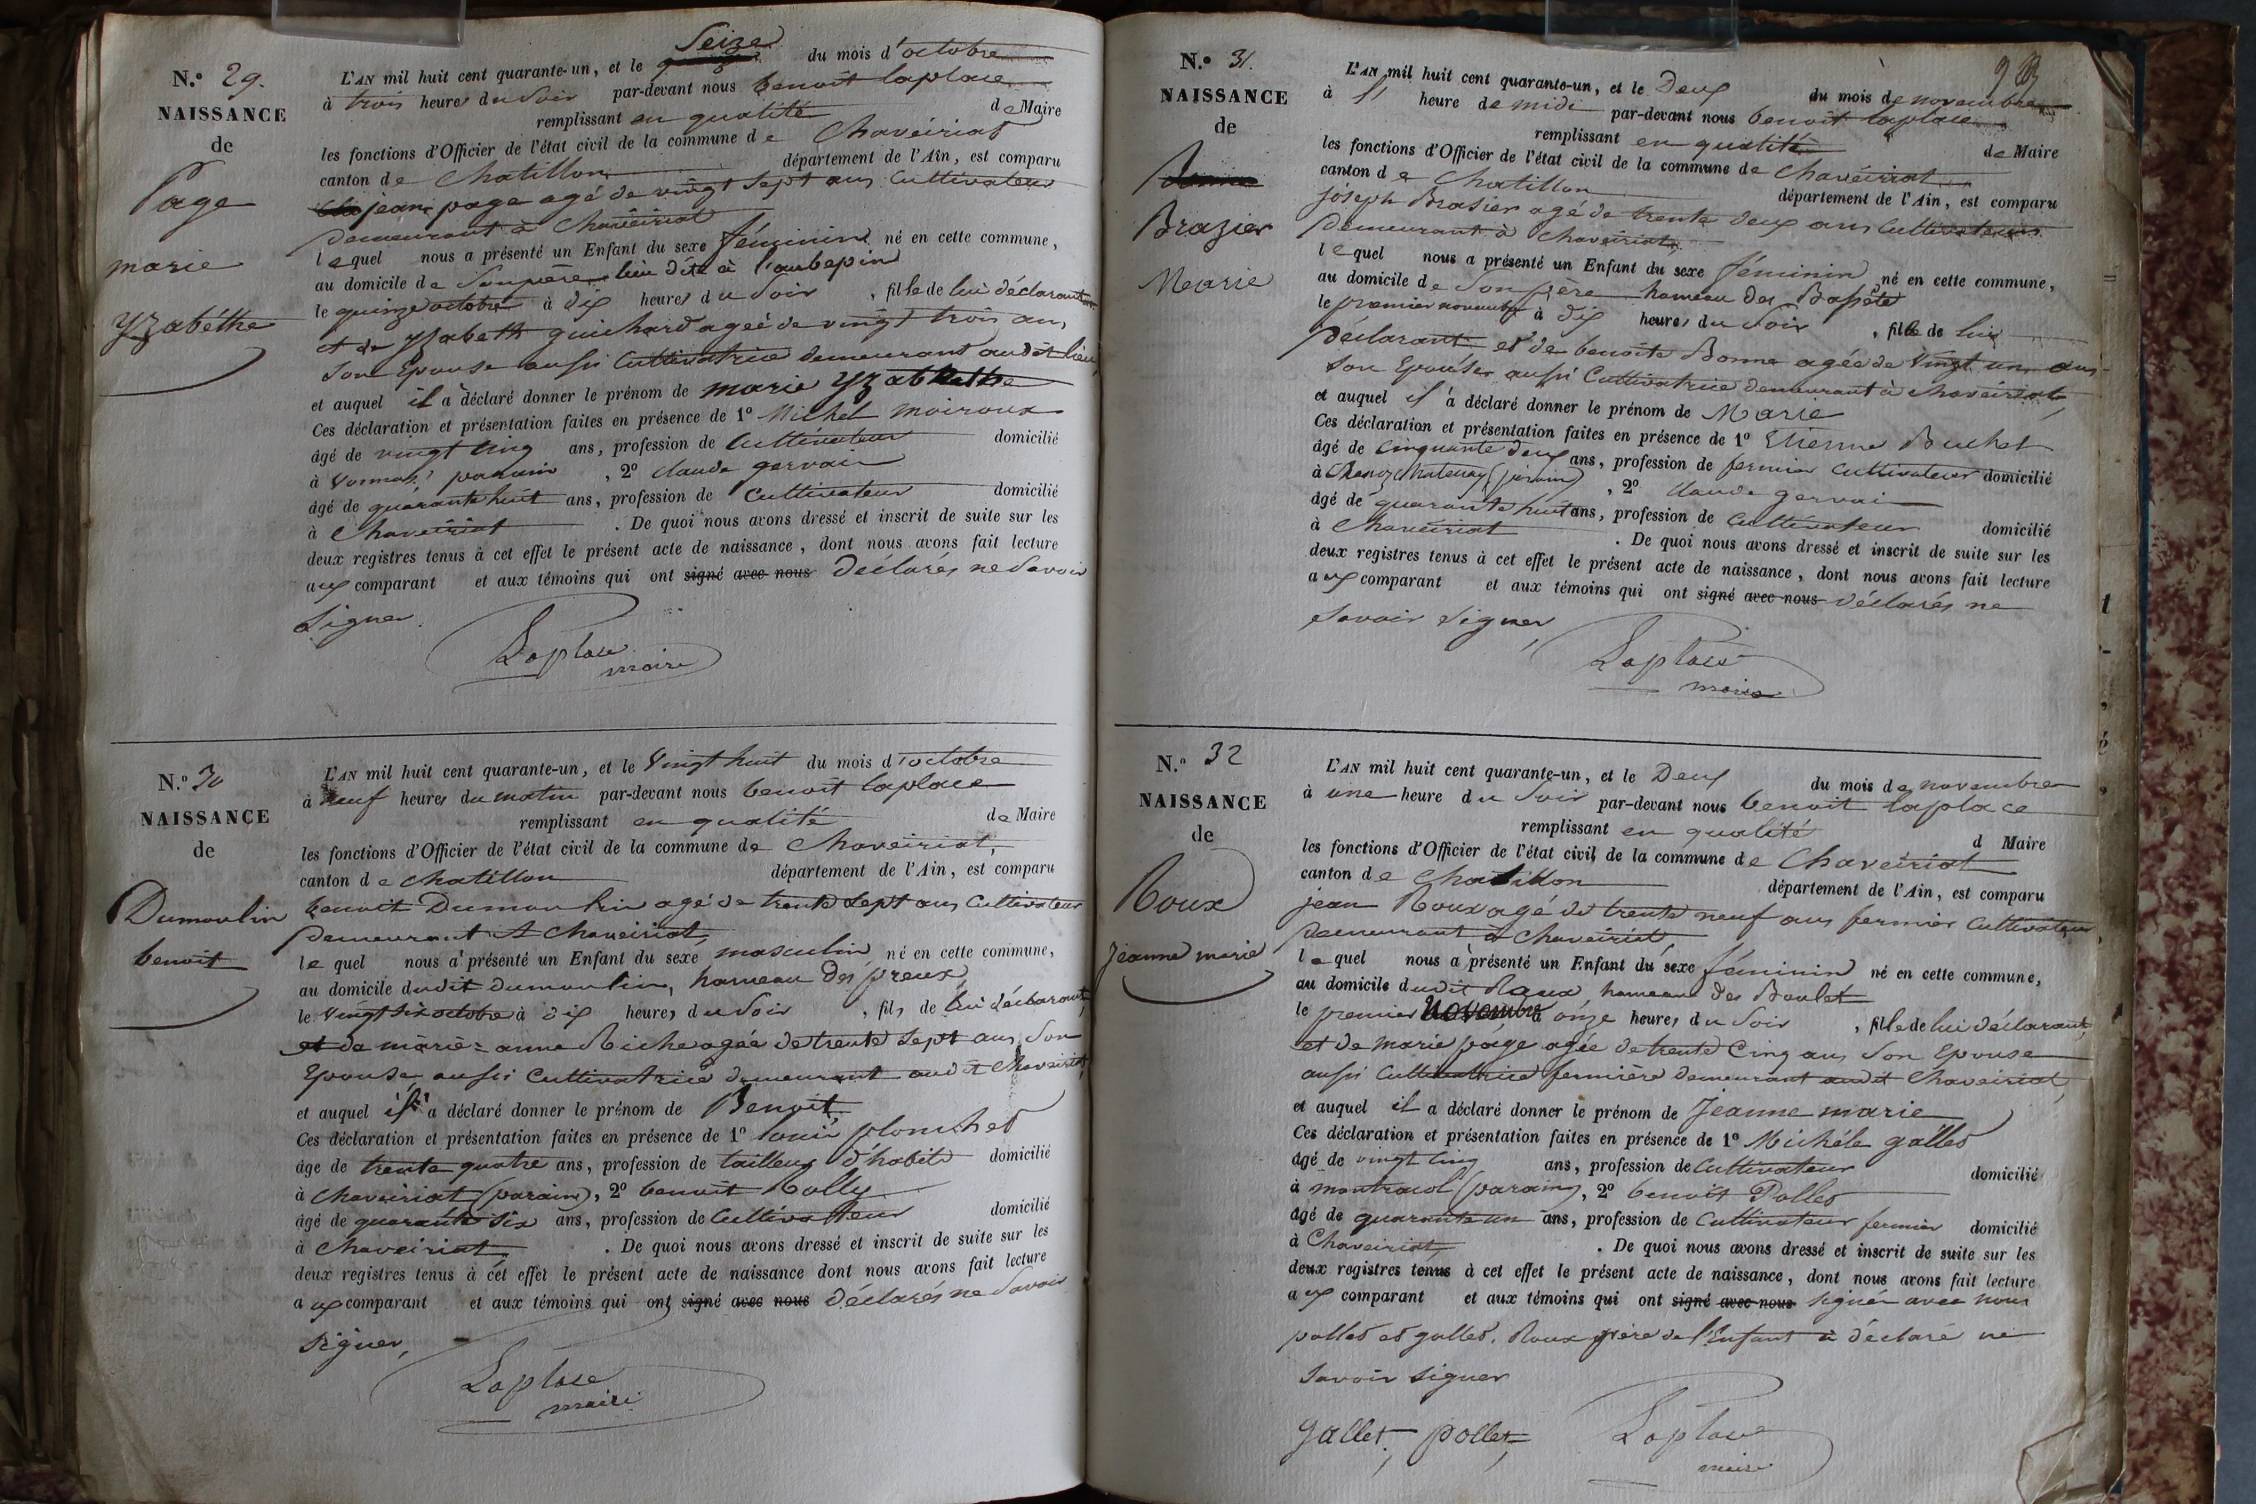 N.º 29.
NAISSANCE
de
Page
marie
Yzabéthe
Seize
L'AN mil huit cent quarante-un, et le du mois d'octobre
à trois heures du Soir par-devant nous benoît laplace
remplissant en qualité de Maire
les fonctions d'Officier de l'état civil de la commune de Chaveiriat
canton de Chatillon département de l'Ain, est comparu
jean page agé de vingt Sept ans Cultivateur
demeurant à Chaveiriat
lequel nous a présenté un Enfant du sexe féminin né en cette commune,
au domicile de Son père lieu dit à l'aubepin
le quinze octobre à dix heures du Soir , fille de lui déclarant
et de Yzabeth guichard ageé de vingt trois ans
Son Epouse aussi Cultivatrice demeurant audit lieu,
et auquel il a déclaré donner le prénom de marie Yzabethe
Ces déclaration et présentation faites en présence de 1º Michel moiroux
âgé de vingt cinq ans, profession de Cultivateur domicilié
à Vonnas, , 2º claude gervais
âgé de quarante huit ans, profession de Cultivateur domicilié
à Chaveiriat . De quoi nous avons dressé et inscrit de suite sur les
deux registres tenus à cet effet le présent acte de naissance, dont nous avons fait lecture
aux comparant et aux témoins qui ont signé avec nous déclarés ne Savoir
Signer.
Laplace
maire
N.º 30
NAISSANCE
de
Dumoulin
benoit
L'AN mil huit cent quarante-un, et le Vingt huit du mois d'octobre
à neuf heures du matin par-devant nous benoît laplace
remplissant en qualité de Maire
les fonctions d'Officier de l'état civil de la commune de Chaveiriat,
canton de chatillon département de l'Ain, est comparu
benoit Dumoulin agé de trente Sept ans Cultivateur
demeurant A Chaveiriat,
lequel nous a présenté un Enfant du sexe masculin né en cette commune,
au domicile dudit dumoulin, hameau des preux,
le Vingt Six octobre à dix heures du Soir , fils de lui déclarant,
et de marie-anne Riche agée de trente Sept ans Son
Epouse aussi Cultivatrice demeurant audit Chaveiriat,
et auquel il a déclaré donner le prénom de Benoit,
Ces déclaration et présentation faites en présence de 1º louis plonchet
âge de trente quatre ans, profession de tailleur d'habits domicilié
à Chaveiriat (parain), 2º benoit Rolly
âgé de quarante Six ans, profession de Cultivatteur domicilié
à Chaveiriat, . De quoi nous avons dressé et inscrit de suite sur les
deux registres tenus à cet effet le présent acte de naissance dont nous avons fait lecture
aux comparant et aux témoins qui ont signé avec nous déclarés ne Savoir
Signer,
Laplace
maire
N.º 31.
NAISSANCE
de
Bonne
Brazier
Marie
L'AN mil huit cent quarante-un, et le Deux du mois de novembre
à heure de midi par-devant nous benoît laplace
remplissant en qualité de Maire
les fonctions d'Officier de l'état civil de la commune de Chaveiriat
canton de Chatillon département de l'Ain, est comparu
joseph Brasier agé de trente deux ans Cultivateur
demeurant à Chaveiriat,
lequel nous a présenté un Enfant du sexe féminin né en cette commune,
au domicile de Son père hameau des
le premier novembre à dix heures du Soir , fille de lui
déclarant et de benoite Bonne agée de Vingt un ans
Son Epouse aussi Cultivatrice demeurant à chaveiriat,
et auquel il a déclaré donner le prénom de Marie
Ces déclaration et présentation faites en présence de 1º Etienne Buchet
âgé de cinquante deux ans, profession de fermier Cultivateur domicilié
à (parain) , 2º claude gervai
âgé de quarante huit ans, profession de Cultivateur domicilié
à Chaveiriat . De quoi nous avons dressé et inscrit de suite sur les
deux registres tenus à cet effet le présent acte de naissance, dont nous avons fait lecture
aux comparant et aux témoins qui ont signé avec nous déclarés ne
Savoir Signer,
Laplace
maire
N.º 32
NAISSANCE
de
Roux
Jeanne marie
L'AN mil huit cent quarante-un, et le Deux du mois de novembre
à une heure du Soir par-devant nous benoit laplace
remplissant en qualité d Maire
les fonctions d'Officier de l'état civil de la commune de Chaveiriat
canton de Chatillon département de l'Ain, est comparu
jean Roux agé de trente neuf ans fermier Cultivateur
demeurant à Chaveiriat,
lequel nous a présenté un Enfant du sexe féminin né en cette commune,
au domicile dudit Roux hameau des Boulet
le premier novembre à onze heures du Soir , fille de lui déclarant,
et de marie page agée de trente Cinq ans Son Epouse
aussi Cultivatrice fermière demeurant audit Chaveiriat,
et auquel il a déclaré donner le prénom de Jeanne marie
Ces déclaration et présentation faites en présence de 1º Michele gallet
âgé de vingt cinq ans, profession de Cultivateur domicilié
à montracol (parain), 2º benoit Pollet
âgé de quarante un ans, profession de Cultivateur fermier domicilié
à Chaveiriat, . De quoi nous avons dressé et inscrit de suite sur les
deux registres tenus à cet effet le présent acte de naissance, dont nous avons fait lecture
aux comparant et aux témoins qui ont signé avec nous signés avec nous
pollet et gallet. Roux père de l'Enfant a déclaré ne
Savoir signer
gallet, pollet,
Laplace
maire